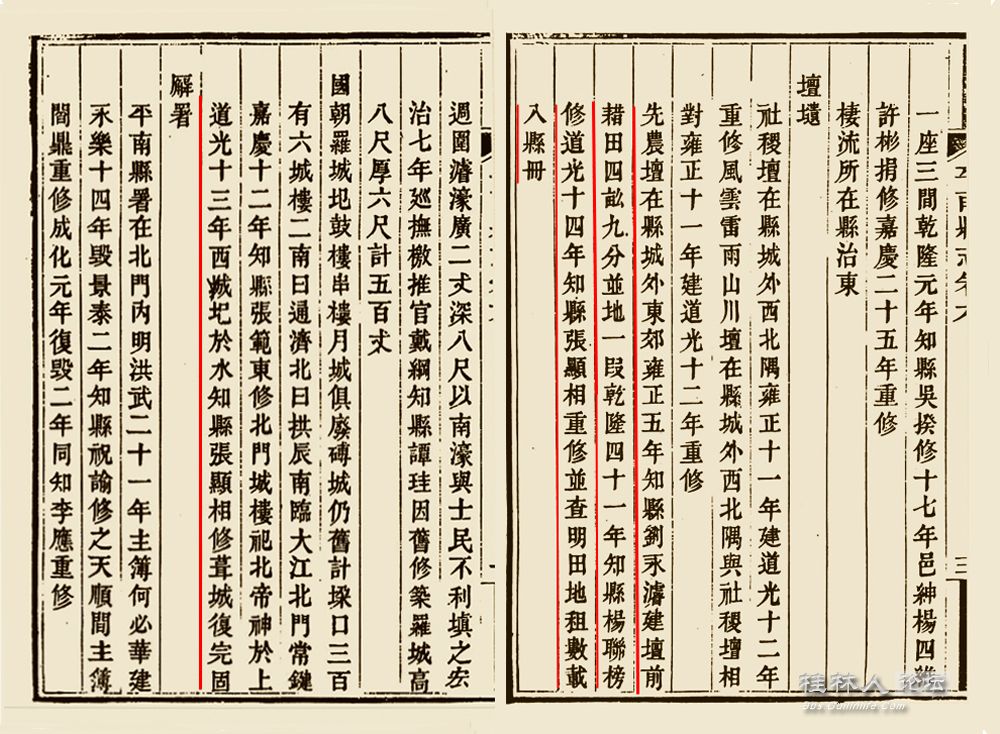 一座三間乾隆元年知縣吳揆修十七年邑紳楊四
許彬捐修嘉慶二十五年重修
棲流所在縣治東
壇壝
社稷壇在縣城外西北隅雍正十一年建道光十二年
重修風雲雷雨山川壇在縣城外西北隅與社稷壇相
對雍正十一年建道光十二年重修
先農壇在縣城外東郊雍正五年知縣劉永濬建壇前
耤田四畝九分並地一段乾隆四十一年知縣楊聯榜
修道光十四年知縣張顯相重修並查明田地租數載
入縣冊
週圍濬濠廣二丈深八尺以南濠與士民不利填之宏
治七年廵撫檄推官戴綱知縣譚珪因舊修築羅城高
八尺厚六尺計五百丈
國朝羅城圮鼓樓串樓月城俱廢磚城仍舊計垜口三百
有六城樓二南曰通濟北曰拱辰南臨大江北門常鍵
嘉慶十二年知縣張範東修北門城樓祀北帝神於上
道光十三年西城圮於水知縣張顯相修葺城復完固
廨署
平南縣署在北門內明洪武二十一年主簿何必華建
永樂十四年毀景泰二年知縣祝諭修之天順間主簿
閻鼎重修成化元年復毀二年同知李應重修
桂林人 论坛
bbs.Guilinlife.com